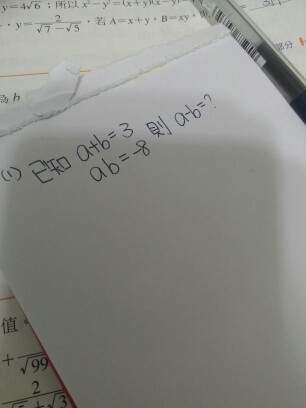 y=4√6；所以 x²-y²=(x+y)(x-y)
，y=2/(√7-√5)，若 A=x+y，B=xy，
b
(1) 已知 a+b=3 則 a-b=?
ab=-8
值
+
√99
2
+√3